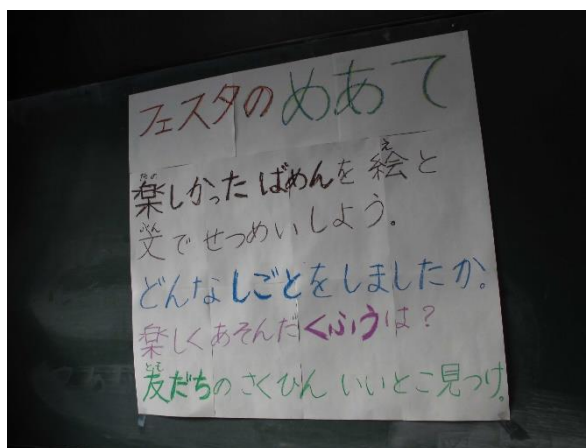 フェスタのめあて
楽しかったばめんを絵と
文でせつめいしよう。
どんなしごとをしましたか。
楽しくあそんだくふうは？
友だちのさくひん いいとこ見つけ。